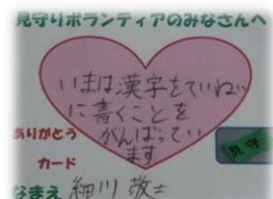 見守りボランティアのみなさんへ
いまは漢字をていねい
に書くことを
がんばってい
ます
ありがとう
カード
見守
なまえ 細川 敬士